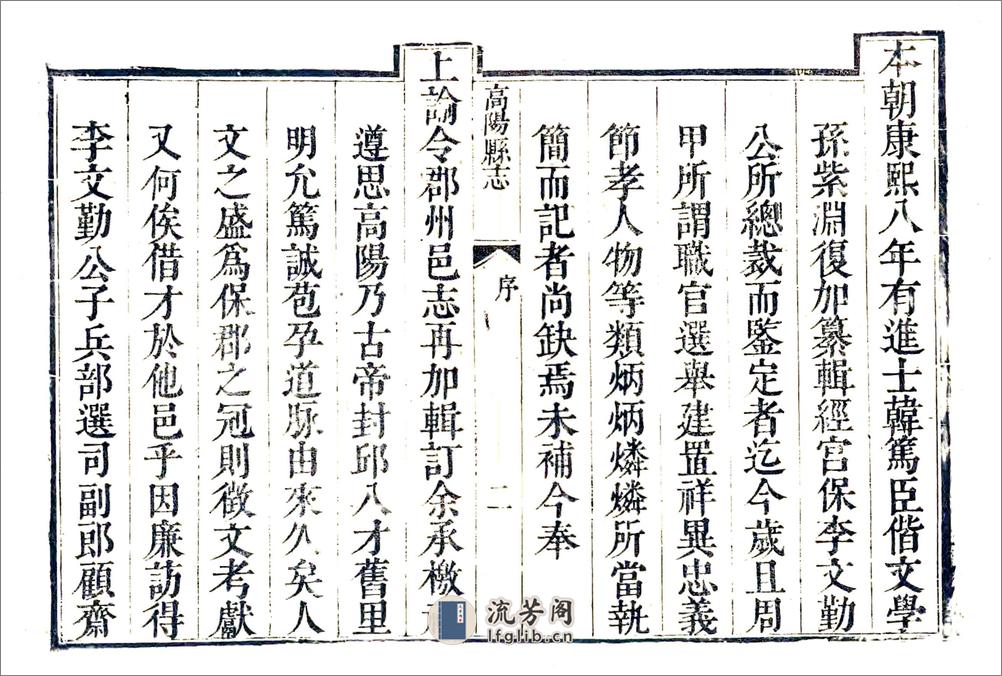 本朝康熙八年有進士韓篤臣偕文學
孫紫淵復加纂輯經宮保李文勤
公所總裁而鑒定者迄今歲且周
甲所謂職官選舉建置祥異忠義
節孝人物等類炳炳燐燐所當執
簡而記者尚缺焉未補今奉
高陽縣志
序
二
上諭令郡州邑志再加輯訂余承檄
遵思高陽乃古帝封邱八才舊里
明允篤誠苞孕道脉由來久矣人
文之盛爲保郡之冠則徵文考獻
又何俟借才於他邑乎因廉訪得
李文勤公子兵部選司副郎顧齋
流芳阁
lfglib.cn